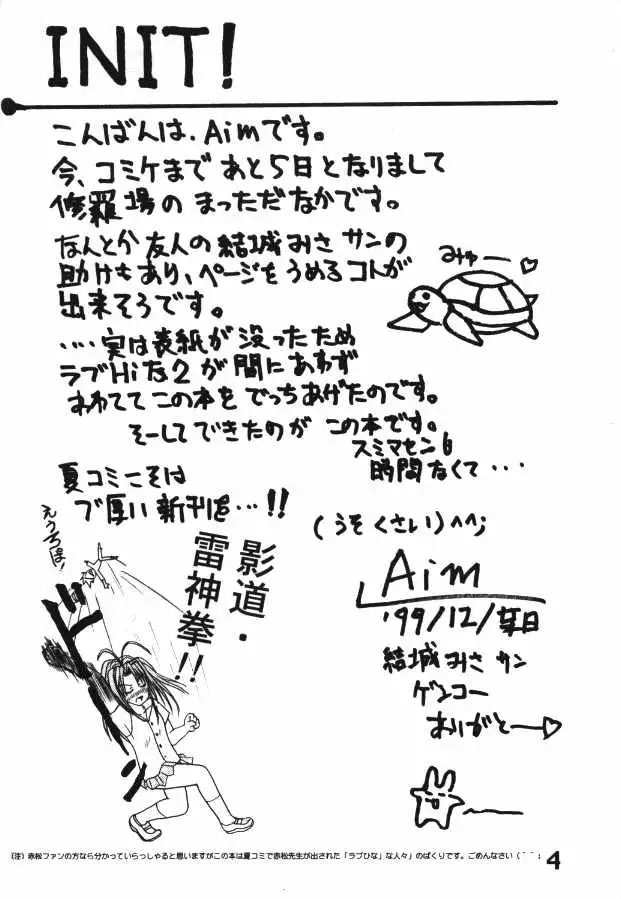 INIT!
こんばんは、Aimです。
今、コミケまで あと5日となりまして
修羅場の まっただなかです。
なんとか 友人の 結城みさ サンの
助けもあり、ページを うめるコトが
出来そうです。
みゅー♡
....実は表紙が 没ったため
ラブHiな2が 間にあわず
あわてて この本を でっちあげたのです。
そーしてできたのが この本です。
スミマセン
時間なくて...
夏コミこそは
ブ厚い 新刊を...!!
(うそくさい)^^;
えうちぱ!
影道・
雷神拳!!
ドーン
Aim
'99/12/某日
結城みさ サン
ゲンコー
ありがとー♡
(注) 赤松ファンの方なら分かっていらっしゃると思いますがこの本は夏コミで赤松先生が出された「ラブひな」な人々」のぱくりです。ごめんなさい(^^;
4